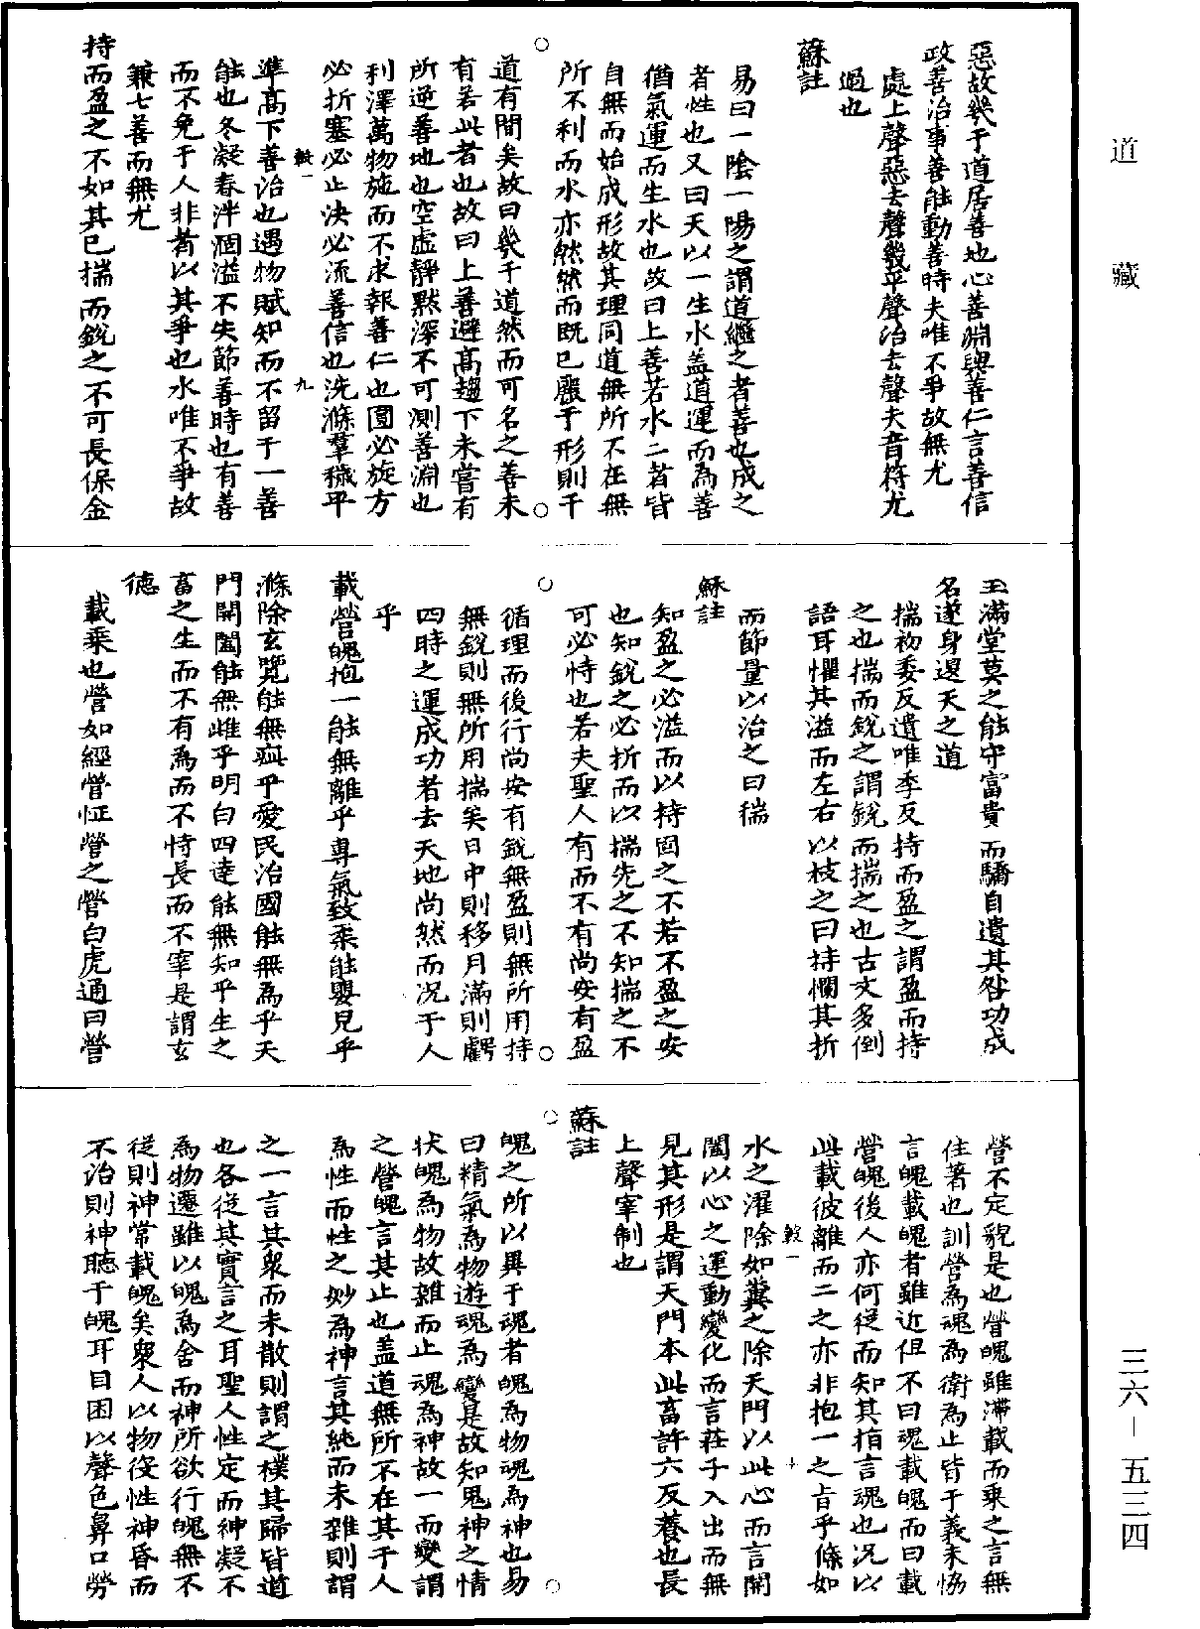 惡故幾于道居善地心善淵與善仁言善信
政善治事善能動善時夫唯不爭故無尤
處上聲惡去聲幾平聲治去聲夫音符尤
過也
蘇註
易曰一陰一陽之謂道繼之者善也成之
者性也又曰天以一生水盖道運而為善
猶氣運而生水也故曰上善若水二者皆
自無而始成形故其理同道無所不在無
所不利而水亦然然而既已麗于形則于
道有間矣故曰幾于道然而可名之善未
有若此者也故曰上善避高趨下未嘗有
所逆善地也空虛靜默深不可測善淵也
利澤萬物施而不求報善仁也圓必旋方
必折塞必止決必流善信也洗滌羣穢平
敲一 九
準高下善治也遇物賦知而不留于一善
能也冬凝春泮涸溢不失節善時也有善
而不免于人非者以其爭也水唯不爭故
兼七善而無尤
持而盈之不如其已揣而銳之不可長保金
玉滿堂莫之能守富貴而驕自遺其咎功成
名遂身退天之道
揣初委反遺唯季反持而盈之謂盈而持
之也揣而銳之謂銳而揣之也古文多倒
語耳懼其溢而左右以枝之曰持憪其折
而節量以治之曰揣
穌註
知盈之必溢而以持固之不若不盈之安
也知銳之必折而以揣先之不知揣之不
可必恃也若夫聖人有而不有尚安有盈
循理而後行尚安有銳無盈則無所用持
無銳則無所用揣矣日中則移月滿則虧
四時之運成功者去天地尚然而况于人
乎
載營魄抱一能無離乎專氣致柔能嬰兒乎
滌除玄覽能無疵乎愛民治國能無為乎天
門開闔能無雌乎明白四達能無知乎生之
畜之生而不有為而不恃長而不宰是謂玄
德
載乗也營如經營怔營之營白虎通曰營
營不定貌是也營魄雖滯載而乗之言無
住著也訓營為魂為衛為止皆于義未恊
言魄載魄者雖近但不曰魂載魄而曰載
營魄後人亦何從而知其指言魂也况以
此載彼離而二之亦非抱一之旨乎滌如
敲一 十
水之濯除如糞之除天門以此心而言開
闔以心之運動變化而言莊子入出而無
見其形是謂天門本此畜許六反養也長
上聲宰制也
蘇註
魄之所以異于魂者魄為物魂為神也易
曰精氣為物遊魂為變是故知鬼神之情
狀魄為物故雜而止魂為神故一而變謂
之營魄言其止也盖道無所不在其于人
為性而性之妙為神言其純而未雜則謂
之一言其衆而未散則謂之樸其歸皆道
也各從其實言之耳聖人性定而神凝不
為物遷雖以魄為舍而神所欲行魄無不
從則神常載魄矣衆人以物役性神昏而
不治則神聽于魄耳目困以聲色鼻口勞
道藏
三六－五三四